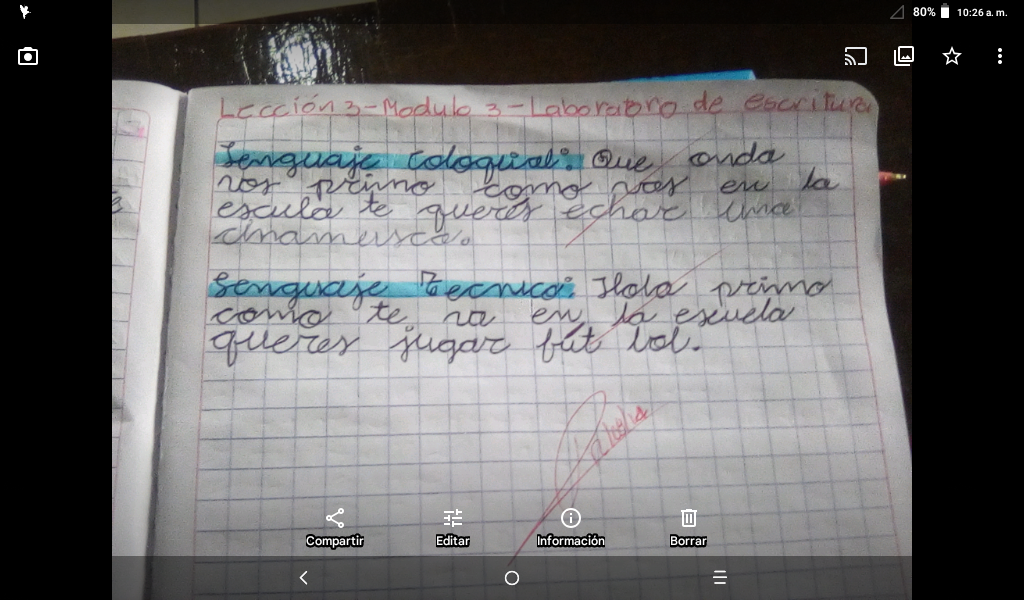 80% 10:26 a.m.
Lección 3-Modulo 3-Laboratoro de escritura
Lenguaje Coloquial: Que onda
vos primo como vas en la
escula te querés echar una
Lenguaje Tecnico: Hola primo
como te va en la escuela
queres jugar fút bol.
Compartir Editar Información Borrar